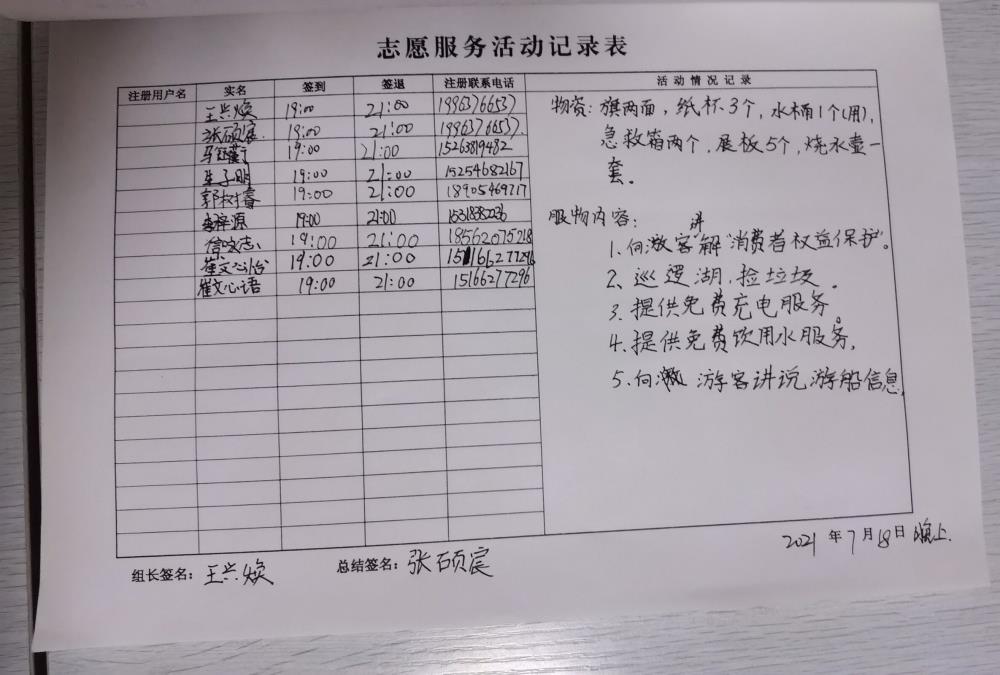 志愿服务活动记录表
注册用户名 实名 签到 签退 注册联系电话 活动情况记录
王兴焕 19:00 21:00 19963766537
张硕宸 19:00 21:00 19963766537
19:00 21:00 15263819482
生子明 19:00 21:00 15254682167
郭树睿 19:00 21:00 18905469717
李梓源 19:00 21:00
信咏志 19:00 21:00 18562075218
崔文心怡 19:00 21:00 15166277296
崔文心语 19:00 21:00 15166277296
物资:旗两面,纸杯3个,水桶1个(用),
急救箱两个,展板5个,烧水壶一
套。
服物内容:
1.向游客讲解“消费者权益保护”。
2、巡逻湖,捡垃圾。
3.提供免费充电服务。
4.提供免费饮用水服务,
5.向 游客讲说游船信息,
2021年7月18日 晚上.
组长签名:王兴焕 总结签名:张硕宸